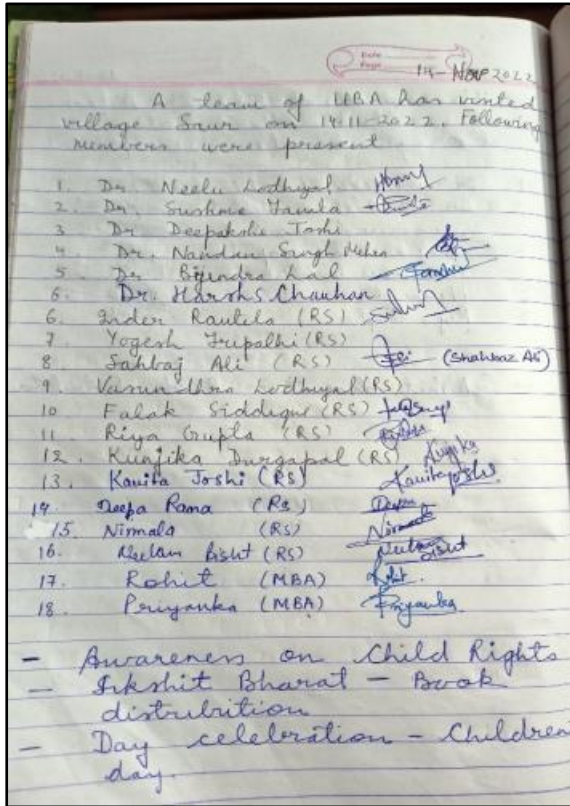 Date
Page
14-Nov 2022
A team of UBA has visited
village Saur on 14-11-2022. Following
members were present
1. Dr. Neelu Lodhiyal
2. Dr. Sushma Tamta
3 Dr Deepakshi Joshi
4 Dr. Nandan Singh Mehra
5 Dr Bijendra Lal
6. Dr. Harshs Chauhan
6. Inder Rautela (RS)
7 Yogesh Tripathi (RS)
8 Sahbaj Ali (RS) (Shahbaz Ali)
9. Vasundhra Lodhiyal (RS)
10 Falak Siddique (RS)
11. Riya Gupta (RS)
12. Kunjika Durgapal (RS) Kunjika
13. Kavita Joshi (RS) Kavita Joshi
14. Deepa Rana (Rs) Deepa
15. Nirmala (RS) Nirmala
16. Neelam Bisht (RS) Neelam Bisht
17. Rohit (MBA) Rohit.
18. Priyanka (MBA) Priyanka
- Awareness on Child Rights
- Shikshit Bharat - Book
distribution
- Day celebration - Children
day.